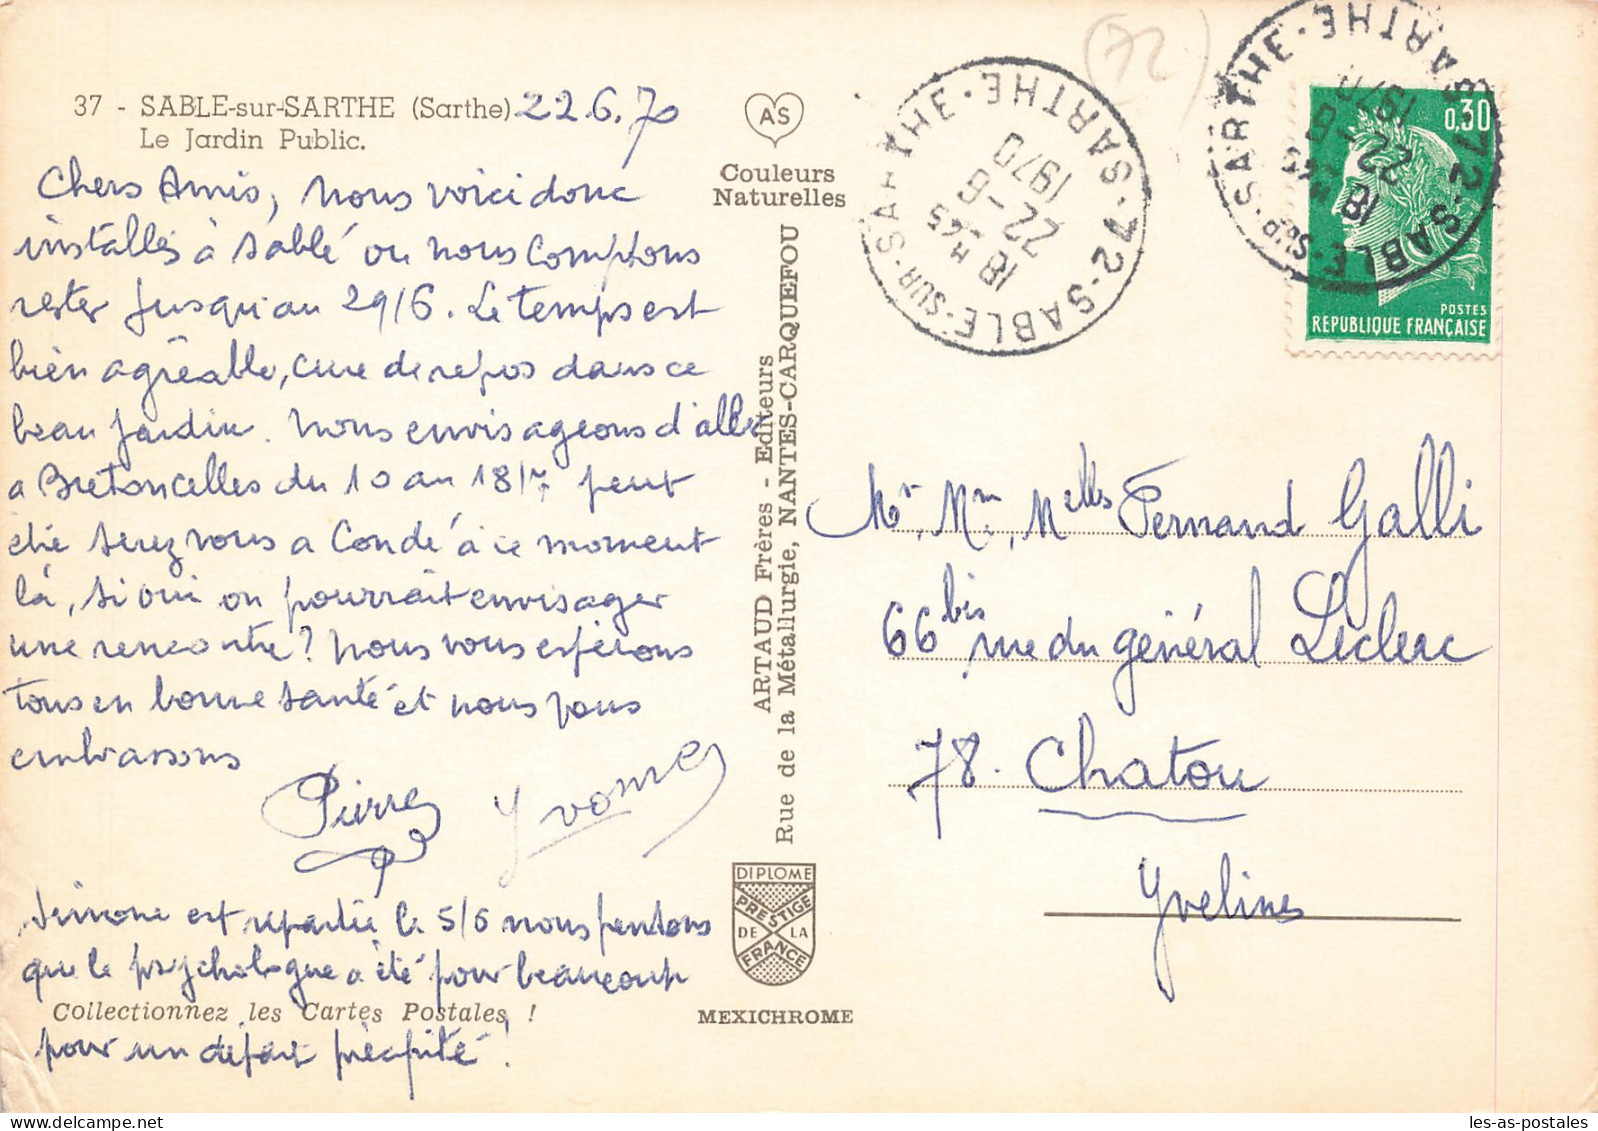 37 - SABLE-sur-SARTHE (Sarthe) 22.6.70
Le Jardin Public.
Chers Amis, nous voici donc
installés à Sablé où nous comptons
rester jusqu'au 29/6. Le temps est
bien agréable, cure de repos dans ce
beau jardin. Nous envisageons d'aller
a Bretoncelles du 10 au 18/7 peut
être serez vous a Condé à ce moment
là, si oui on pourrait envisager
une rencontre? Nous vous espérons
tous en bonne santé et nous vous
embrassons
Pierre Yvonne
Simone est repartie le 5/6 nous pensons
que le psychologue a été pour beaucoup
Collectionnez les Cartes Postales !
pour un départ précipité!
AS
Couleurs
Naturelles
ARTAUD Frères - Editeurs
Rue de la Métallurgie, NANTES-CARQUEFOU
DIPLOME
PRESTIGE
DE LA
FRANCE
MEXICHROME
(72)
72-SABLE-SUR-SARTHE·SARTHE
18 H45
22-6
1970
72-SABLE-SUR-SARTHE·SARTHE
18 H45
22-6
1970
0,30
POSTES
REPUBLIQUE FRANÇAISE
Mr, Mm, Melles Fernand Galli
66 bis rue du général Leclerc
78. Chatou
Yvelines
les-as-postales